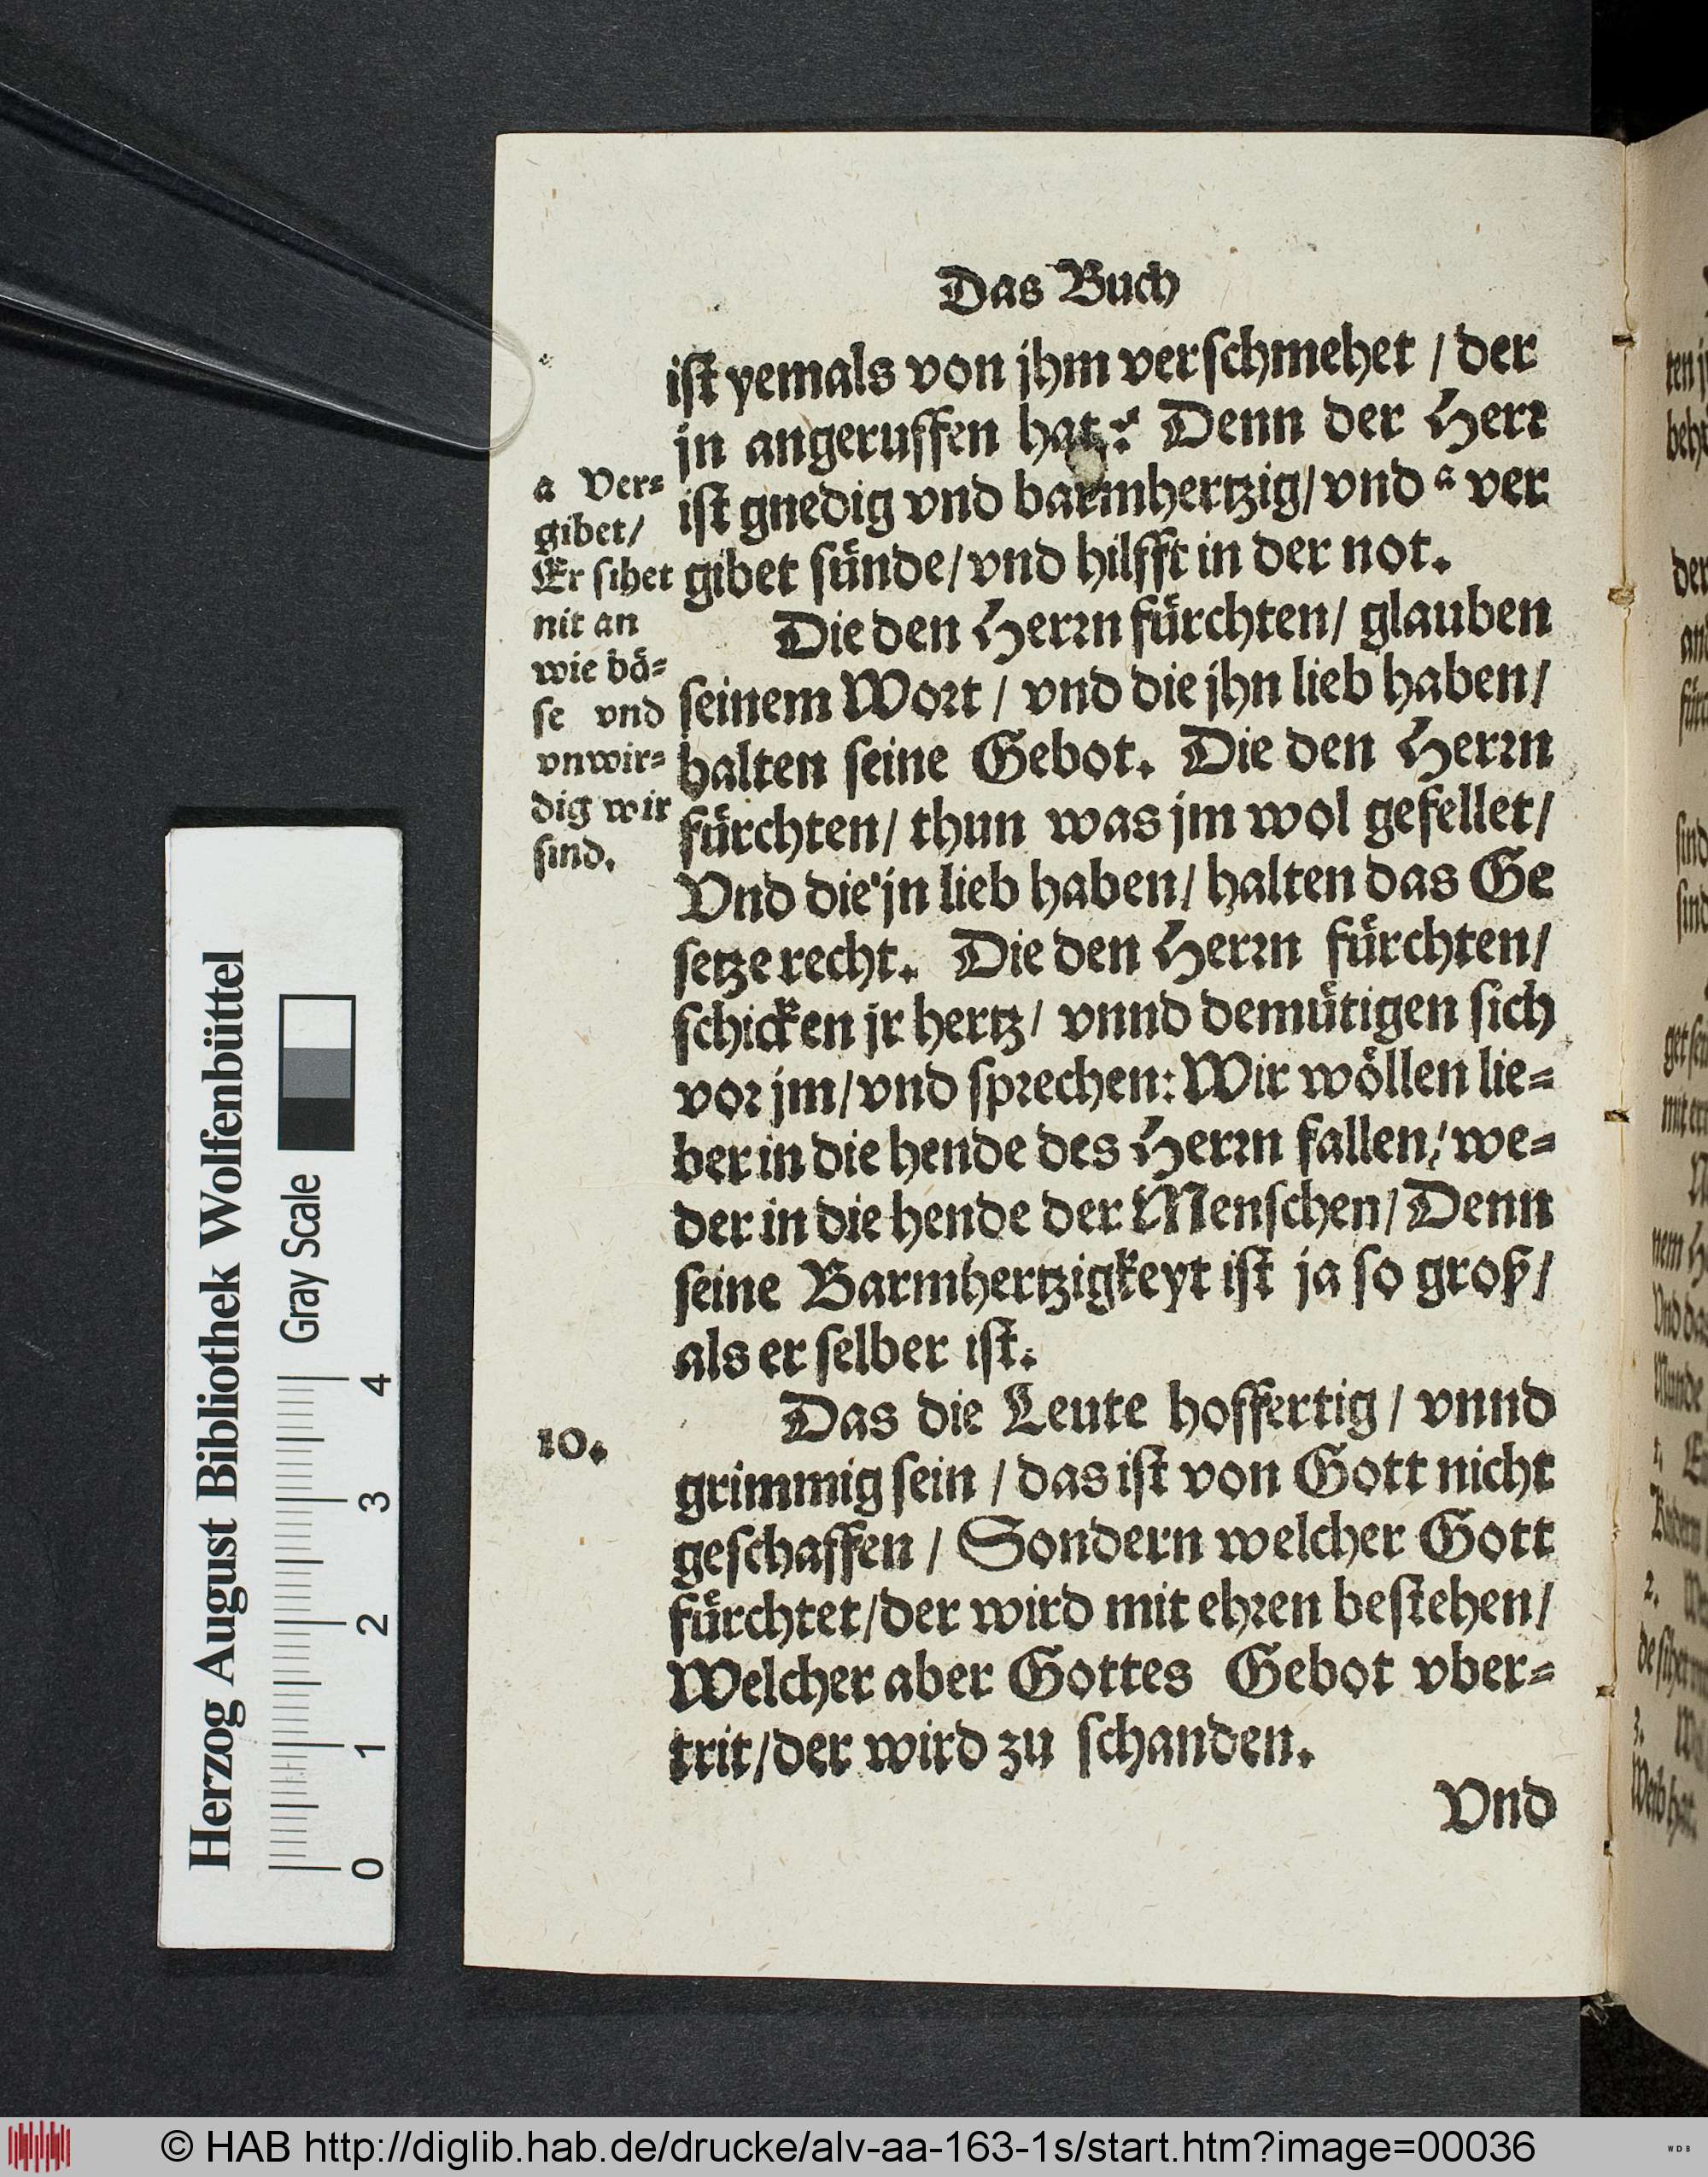 Das Buch
iſt yemals von jhm verſchmehet / der
jn angeruffen hat? Denn der Herr
iſt gnedig vnd barmhertzig/ vnd a ver
gibet ſünde/ vnd hilfft in der not.
Die den Herrn fürchten/ glauben
ſeinem Wort / vnd die jhn lieb haben/
halten ſeine Gebot. Die den Herrn
fürchten/ thun was jm wol gefellet/
Vnd die jn lieb haben/ halten das Ge
ſetze recht. Die den Herrn fürchten/
ſchicken jr hertz/ vnnd demütigen ſich
vor jm/ vnd ſprechen: Wir wöllen lie=
ber in die hende des Herrn fallen/ we=
der in die hende der Menſchen/ Denn
ſeine Barmhertzigkeyt iſt ja ſo groß/
als er ſelber iſt.
Das die Leute hoffertig / vnnd
grimmig ſein / das iſt von Gott nicht
geſchaffen / Sondern welcher Gott
fürchtet/ der wird mit ehren beſtehen/
Welcher aber Gottes Gebot vber=
trit/ der wird zu ſchanden.
Vnd
a Ver=
gibet/
Er ſihet
nit an
wie bö=
ſe vnd
vnwir=
dig wir
ſind.
10.
Herzog August Bibliothek Wolfenbüttel
Gray Scale
0 1 2 3 4
© HAB http://diglib.hab.de/drucke/alv-aa-163-1s/start.htm?image=00036
WDB